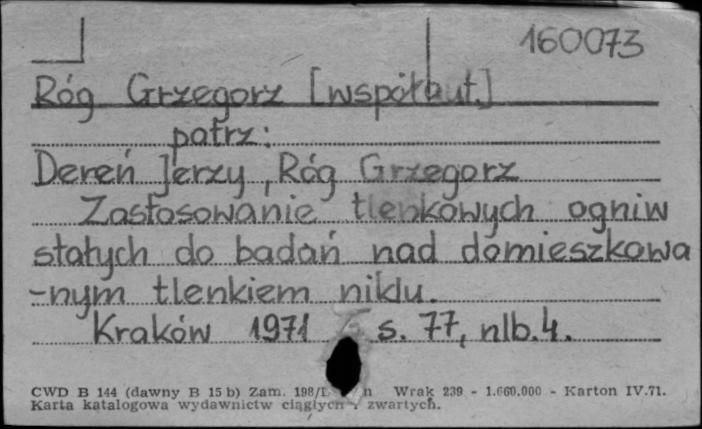 160073
Róg Grzegorz [współaut.]
patrz:
Dereń Jerzy, Róg Grzegorz
Zastosowanie tlenkowych ogniw
stałych do badań nad domieszkowa
-nym tlenkiem niklu.
Kraków 1971 s. 77, nlb. 4.
CWD B 144 (dawny B 15 b) Zam. Wrak 239 - 1.660.000 - Karton IV.71.
Karta katalogowa wydawnictw ciągłych i zwartych.